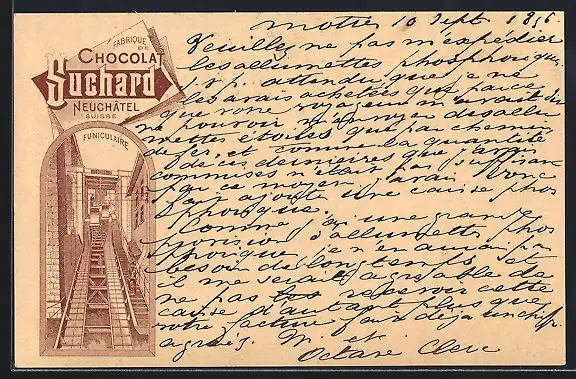 FABRIQUE
DE
CHOCOLAT
Suchard
NEUCHÂTEL
SUISSE
FUNICULAIRE
10 Sept. 1896
Veuillez ne pas m'expédier
les allumettes phosphoriques
s. p. attendu que je ne
les avais achetées que parce
que votre voyageur m'avait dit
ne pouvoir m'envoyer des allu
mettes étoiles que par chemin
de fer, et comme la quantité
de ces dernières que j'avais
commises n'était pas suffisante
par ce moyen, j'avais donc
fait ajouter une caisse phos
phorique.
Comme j'ai une grande
provision d'allumettes phos
phorique, je n'en aurai pas
besoin de longtemps et
il me serait agréable de
ne pas recevoir cette
caisse d'autant plus que
votre facture fait déjà un chiffre
agréez
Octave Clerc